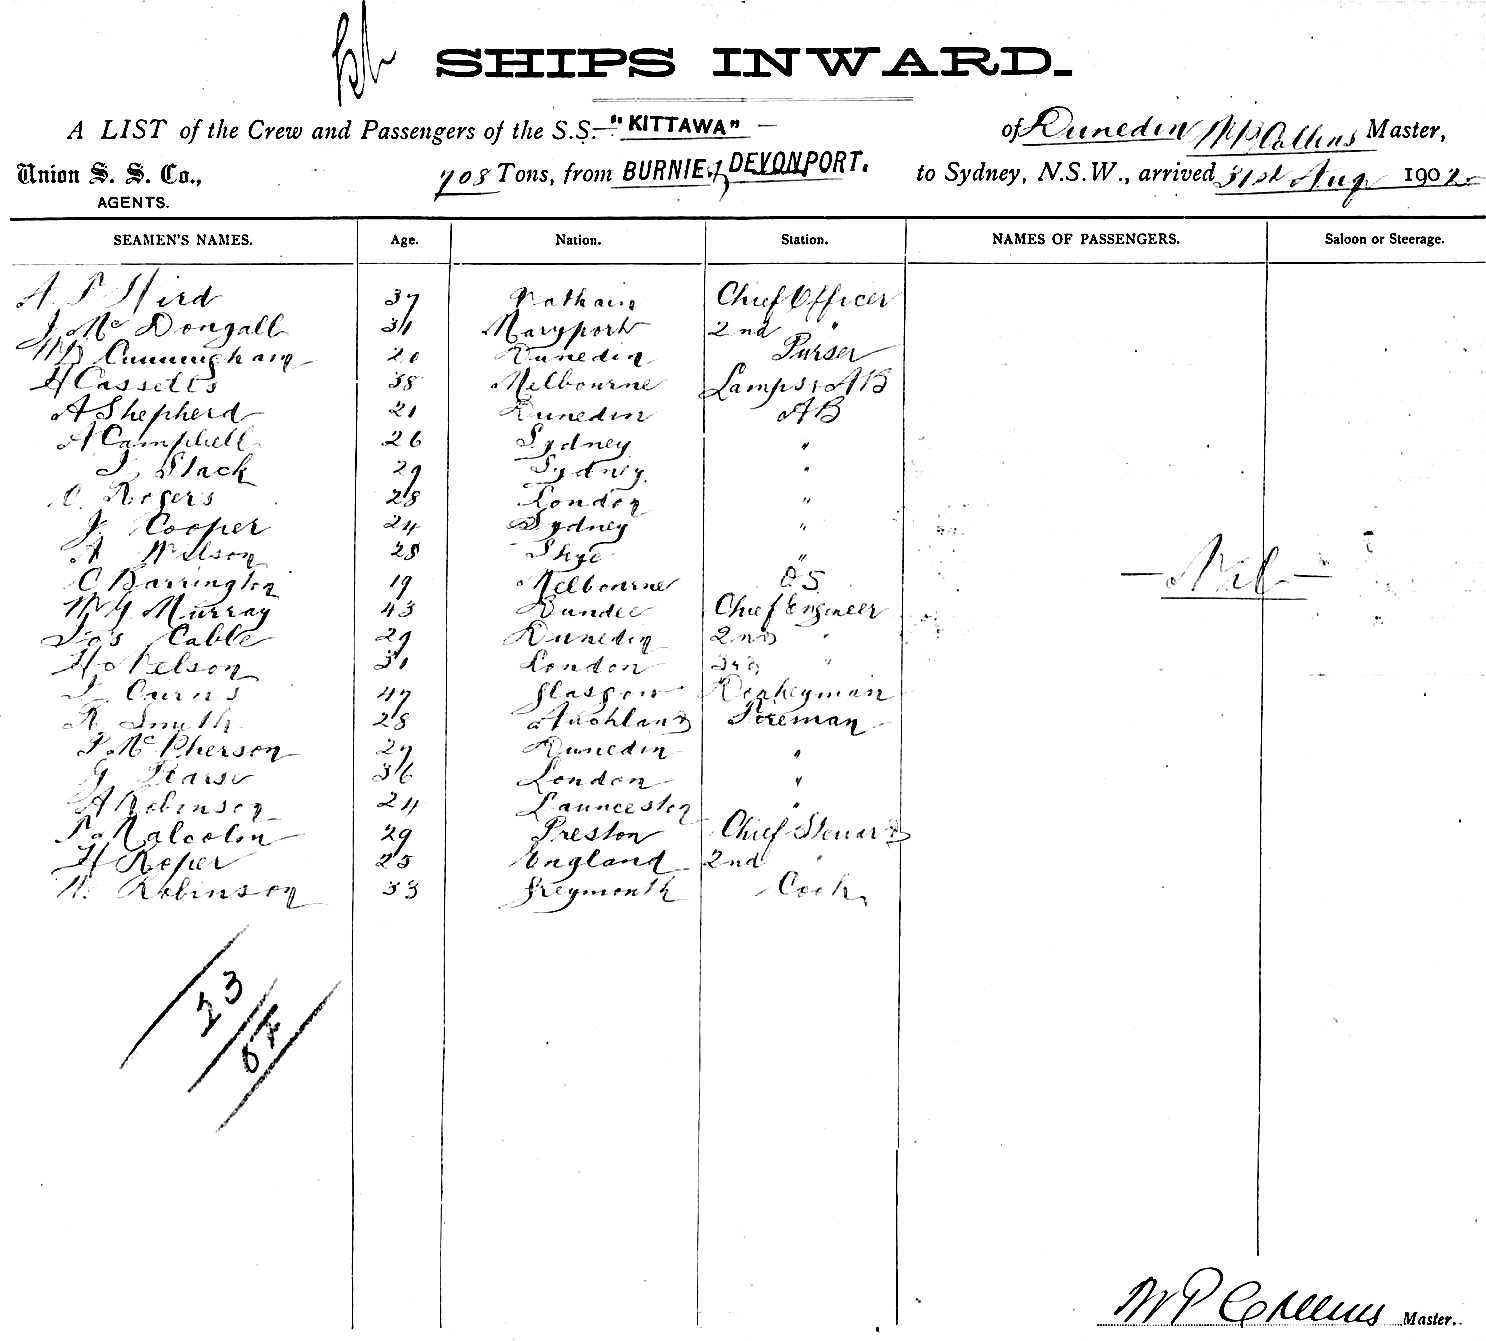 SHIPS INWARD.
A LIST of the Crew and Passengers of the S.S. "KITTAWA" of Dunedin W P Collins Master,
Union S. S. Co., 708 Tons, from BURNIE & DEVONPORT. to Sydney, N.S.W., arrived 31st Aug 1902
AGENTS.
SEAMEN'S NAMES. Age. Nation. Station. NAMES OF PASSENGERS. Saloon or Steerage.
Hird 37 Chief Officer
J. Mc Dongall 31 Maryport 2nd "
Cunningham 20 Dunedin Purser
H Cassells 38 Melbourne Lamps & AB
A Shepherd 21 Dunedin AB
A Campbell 26 Sydney "
Slack 29 Sydney "
C. Rogers 28 London "
J. Cooper 24 Sydney "
A Wilson 28 Skye "
C Barrington 19 Melbourne OS
Murray 43 Dundee Chief Engineer
Jos Cable 29 Dunedin 2nd "
H. Nelson 31 London 3rd "
Cairns 47 Glasgow Donkeyman
R Smith 28 Auckland Fireman
Mc Pherson 27 Dunedin "
G Pearse 36 London "
A Robinson 24 Launceston "
Malcolm 29 Preston Chief Steward
H Roper 25 England 2nd "
W. Robinson 33 Greymouth Cook
— Nil —
23
W P Collins Master.